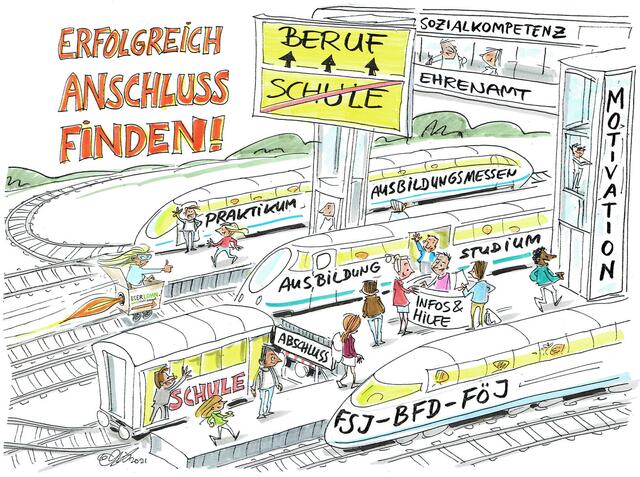 ERFOLGREICH
ANSCHLUSS
FINDEN!
BERUF
SCHULE
SOZIALKOMPETENZ
EHRENAMT
MOTIVATION
PRAKTIKUM
AUSBILDUNGSMESSEN
AUSBILDUNG
STUDIUM
INFOS &
HILFE
ISERLOHN
ABSCHLUSS
SCHULE
FSJ-BFD-FÖJ
2021